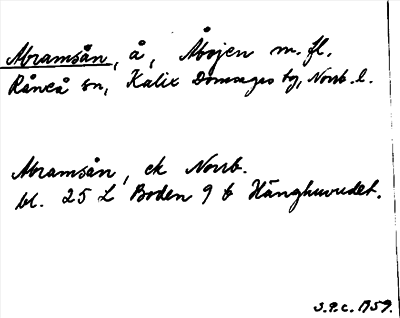 Abramsån, å, Åbojen m. fl.
Råneå sn, Kalix Domsagas tg, Norrb. l.
Abramsån, ek Norrb.
bl. 25 L Boden 9 b Hänghuvudet.
S.P.C. 1959.